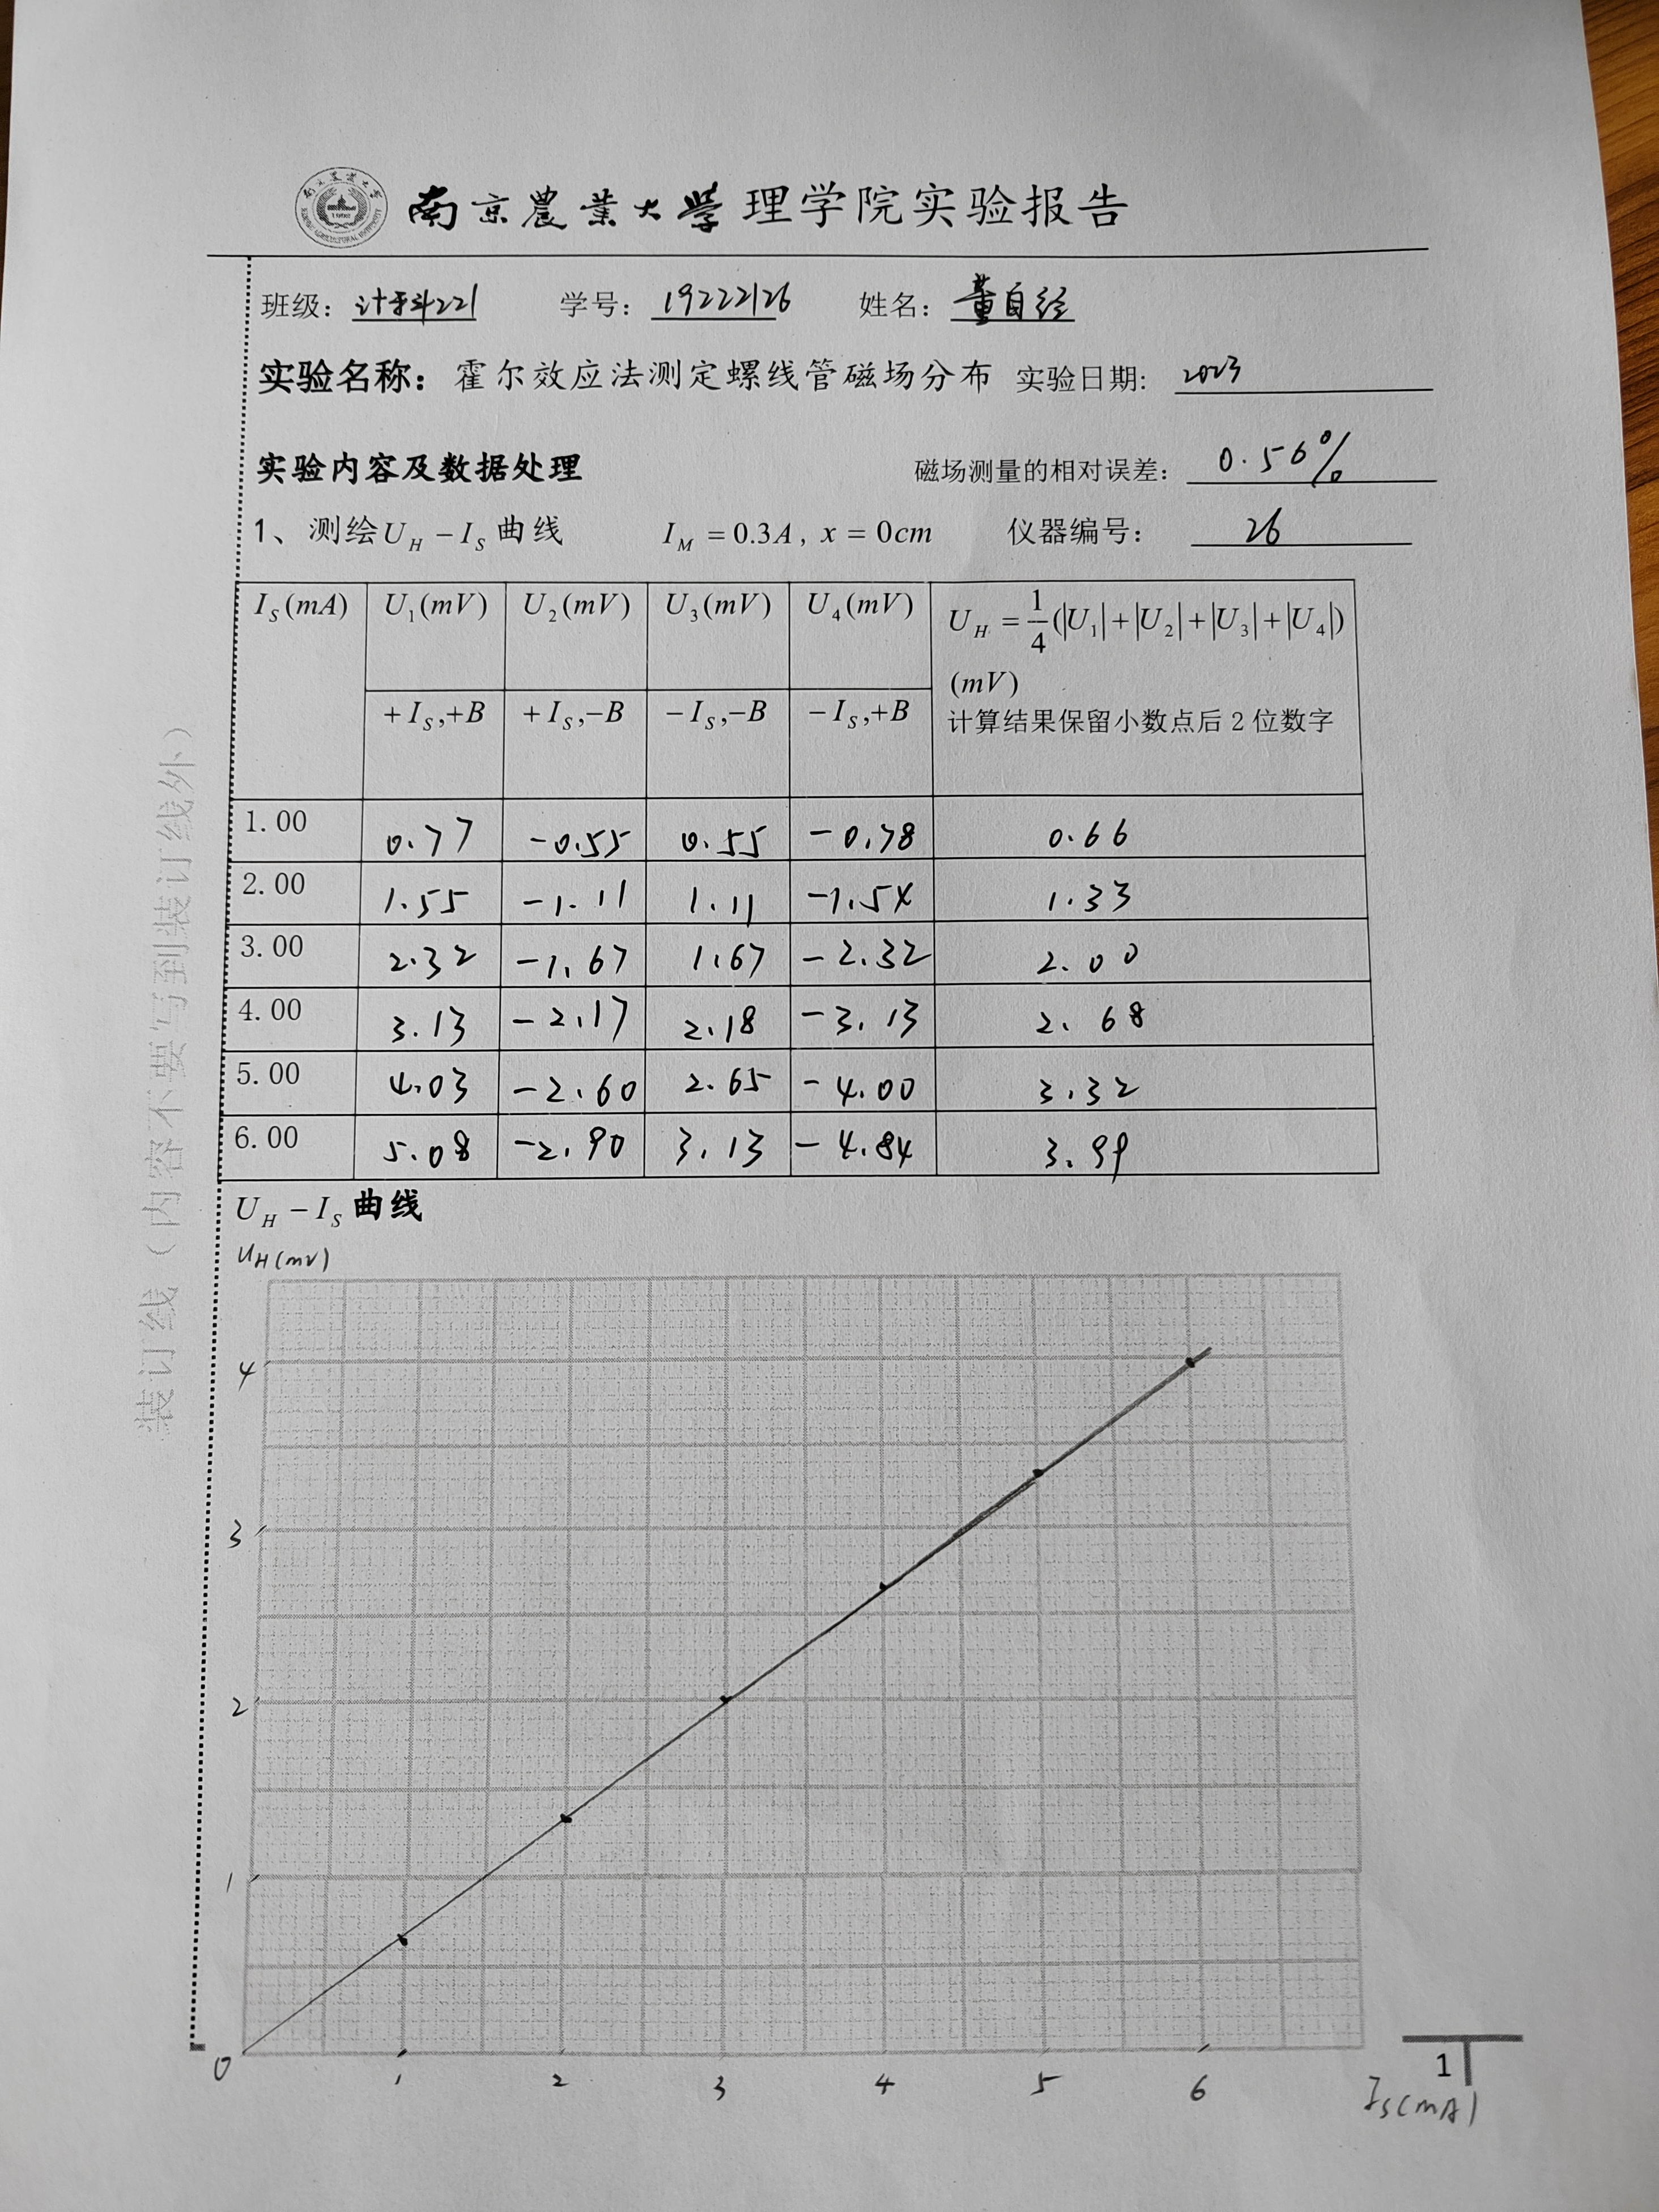 南京農業大學 理学院实验报告
班级: 计科221 学号: 19222126 姓名: 董自经
实验名称: 霍尔效应法测定螺线管磁场分布 实验日期: 2023
实验内容及数据处理 磁场测量的相对误差: 0.56%
1、测绘U_H - I_S 曲线 I_M = 0.3A, x = 0cm 仪器编号: 26
I_S(mA) U_1(mV) U_2(mV) U_3(mV) U_4(mV) U_H = 1/4(|U_1|+|U_2|+|U_3|+|U_4|)
(mV)
+I_S,+B +I_S,-B -I_S,-B -I_S,+B 计算结果保留小数点后 2 位数字
1.00 0.77 -0.55 0.55 -0.78 0.66
2.00 1.55 -1.11 1.11 -1.54 1.33
3.00 2.32 -1.67 1.67 -2.32 2.00
4.00 3.13 -2.17 2.18 -3.13 2.68
5.00 4.03 -2.60 2.65 -4.00 3.32
6.00 5.08 -2.90 3.13 -4.84 3.99
U_H - I_S 曲线
U_H(mV)
4
3
2
1
0 1 2 3 4 5 6
I_S(mA)
1
装订线（内容不要写到装订线外）